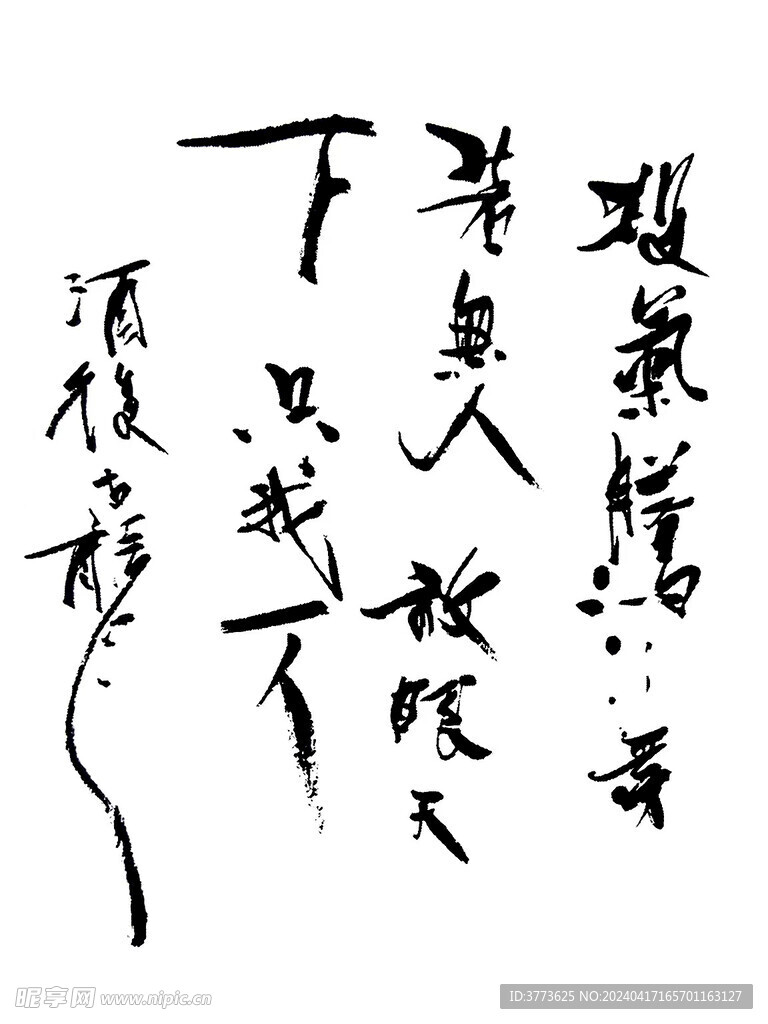 殺氣騰騰 等
若無人 放眼天
下 只我一人
酒後
昵享网 www.nipic.cn
ID:3773625 NO:20240417165701163127